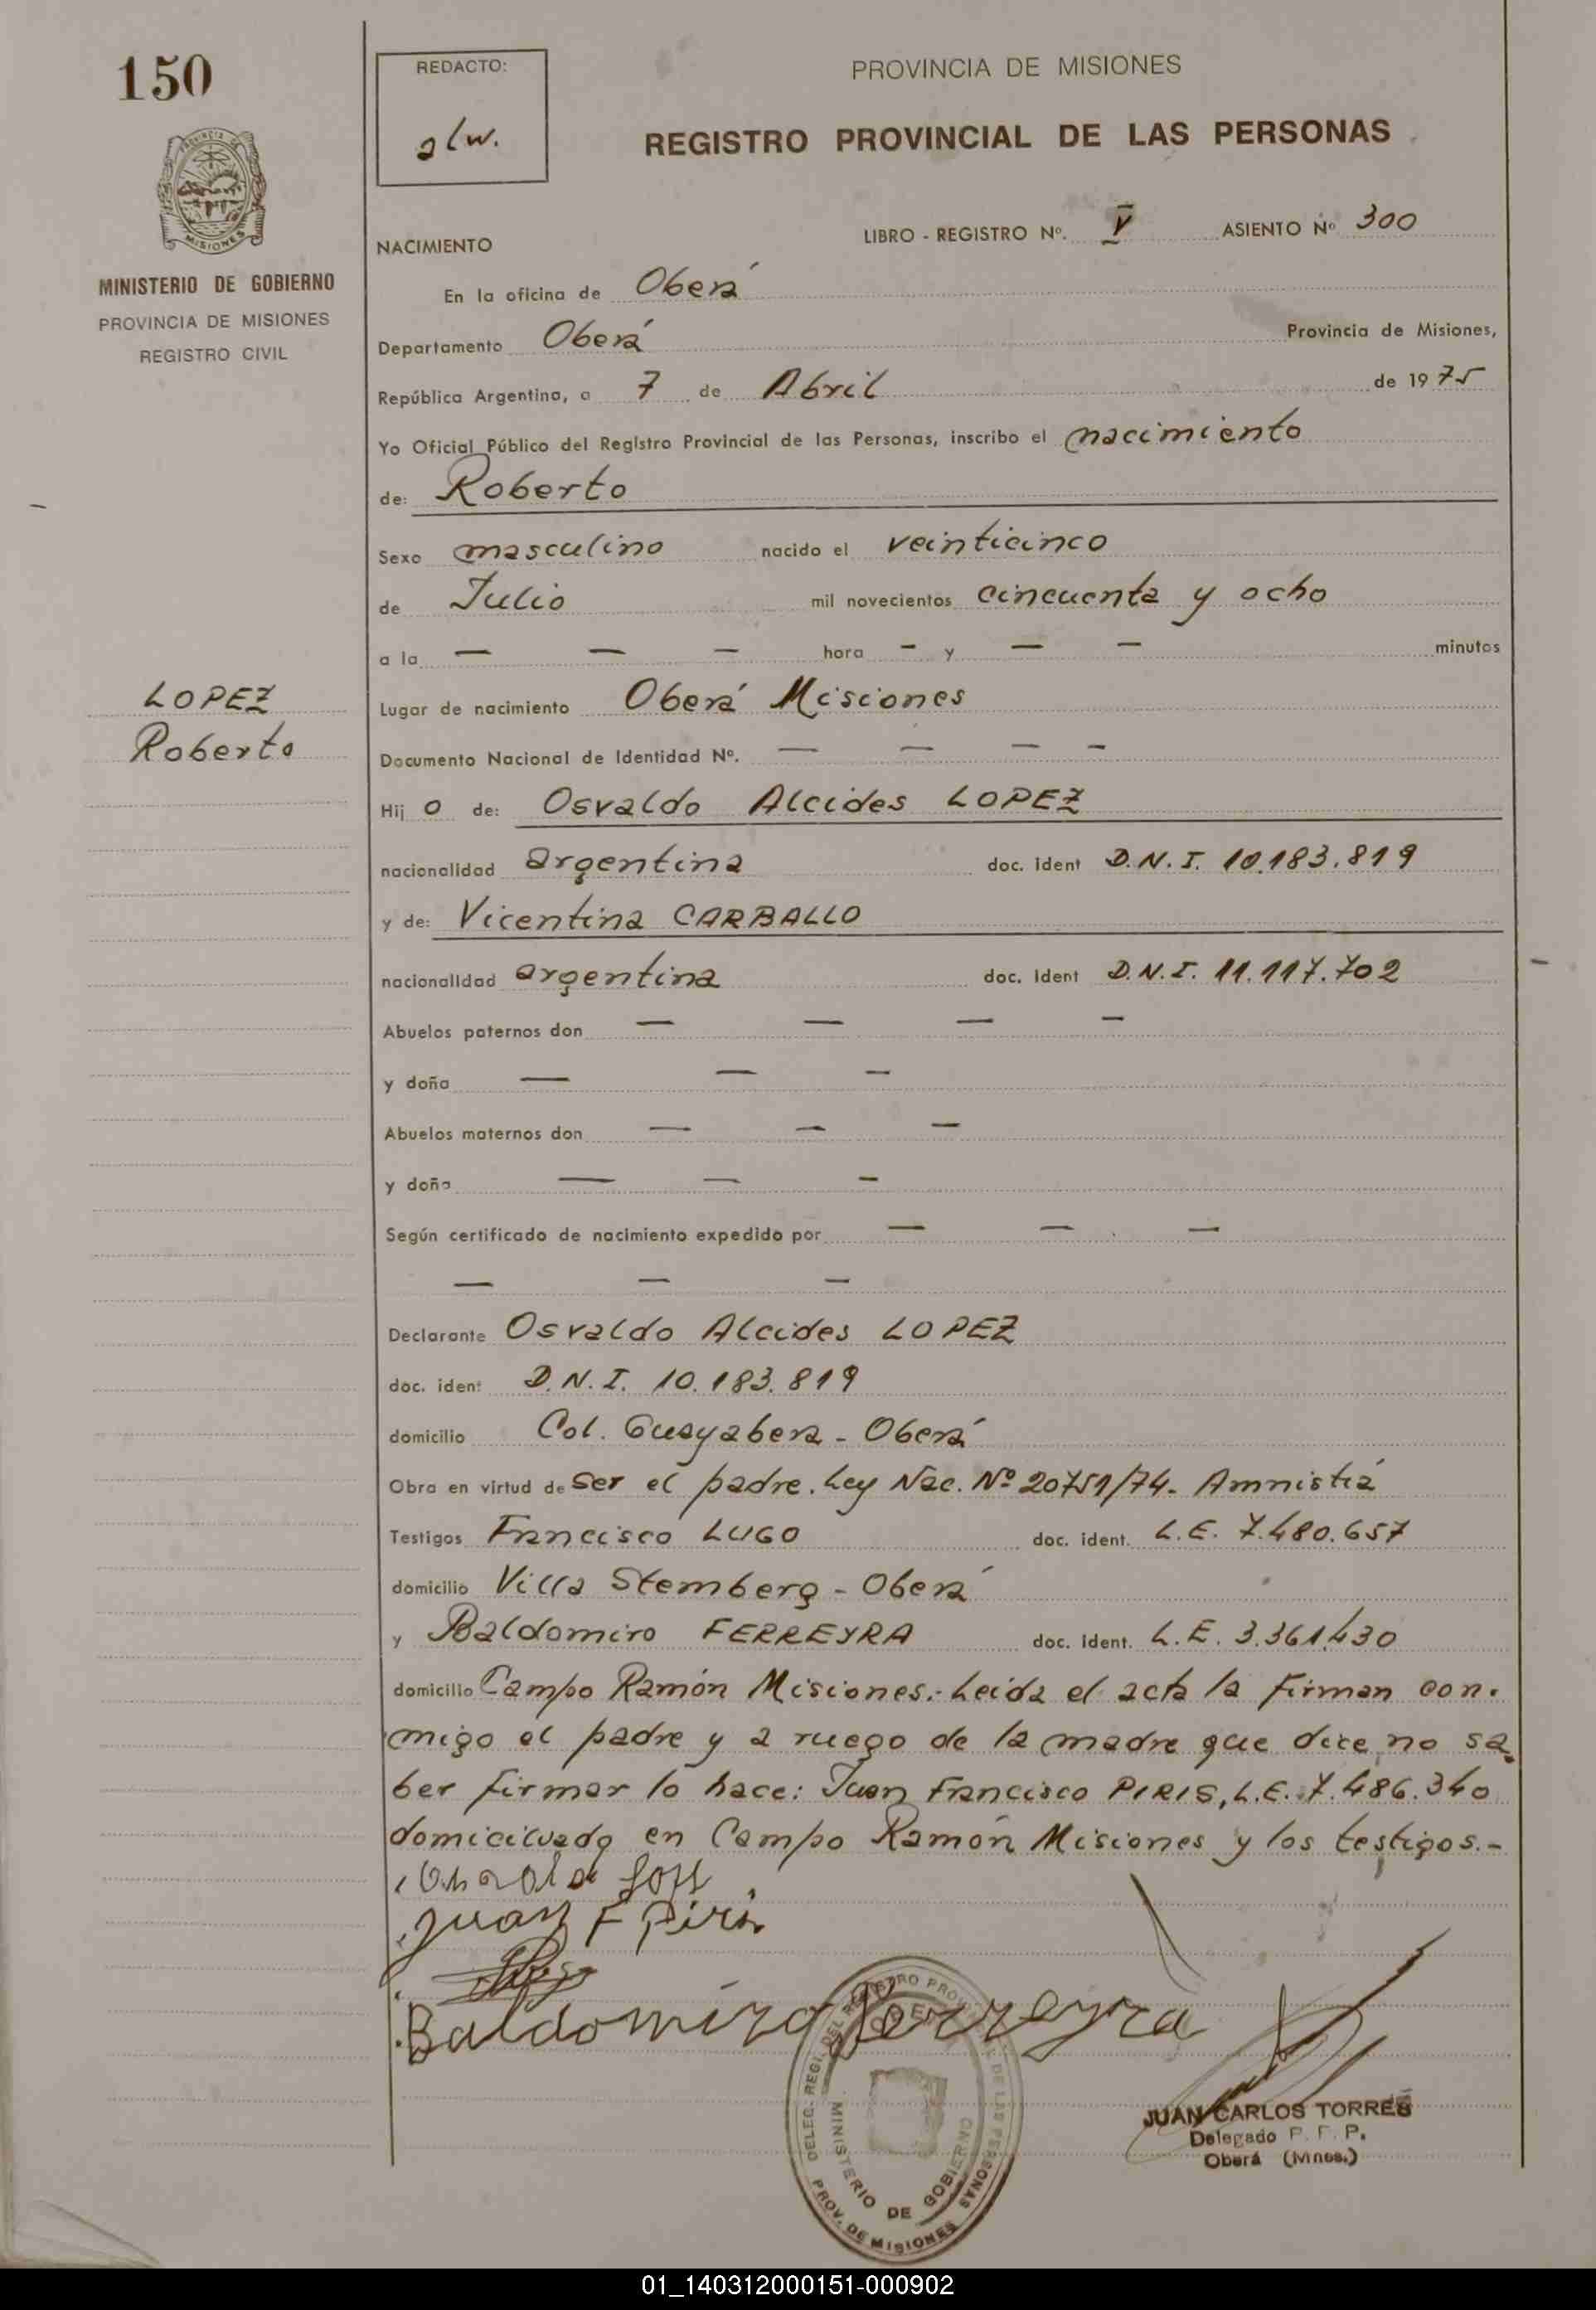 150
REDACTO:
alw.
PROVINCIA DE MISIONES
REGISTRO PROVINCIAL DE LAS PERSONAS
MISIONES
MINISTERIO DE GOBIERNO
PROVINCIA DE MISIONES
REGISTRO CIVIL
LIBRO - REGISTRO Nº. V ASIENTO Nº 300
NACIMIENTO
En la oficina de Oberá
Departamento Oberá Provincia de Misiones,
República Argentina, a 7 de Abril de 1975
Yo Oficial Público del Registro Provincial de las Personas, inscribo el nacimiento
de: Roberto
Sexo masculino nacido el veinticinco
de Julio mil novecientos cincuenta y ocho
a la — — — hora - y — — minutos
LOPEZ
Roberto
Lugar de nacimiento Oberá Misiones
Documento Nacional de Identidad Nº. — — — -
Hij o de: Osvaldo Alcides LOPEZ
nacionalidad argentina doc. ident D.N.I. 10.183.819
y de: Vicentina CARBALLO
nacionalidad argentina doc. ident D.N.I. 11.117.702
Abuelos paternos don — — — —
y doña — — —
Abuelos maternos don — — —
y doña — — —
Según certificado de nacimiento expedido por — — —
— — —
Declarante Osvaldo Alcides LOPEZ
doc. ident D.N.I. 10.183.819
domicilio Col. Guayabera - Oberá
Obra en virtud de ser el padre. Ley Nac. Nº 20751/74- Amnistía
Testigos Francisco LUGO doc. ident. L.E. 7.480.657
domicilio Villa Stemberg - Oberá
y Baldomiro FERREYRA doc. ident. L.E. 3.361.430
domicilio Campo Ramón Misiones.- Leida el acta la firman con-
migo el padre y a ruego de la madre que dice no sa-
ber firmar lo hace: Juan Francisco PIRIS, L.E. 7.486.340
domiciliado en Campo Ramón Misiones y los testigos.-
Juan F Piris
Baldomiro Ferreyra
DELEG. REGI. DEL REGISTRO PROVINCIAL DE LAS PERSONAS
OBERA
MINISTERIO DE GOBIERNO
PROV. DE MISIONES
JUAN CARLOS TORRES
Delegado
Oberá (Mnes.)
01_140312000151-000902